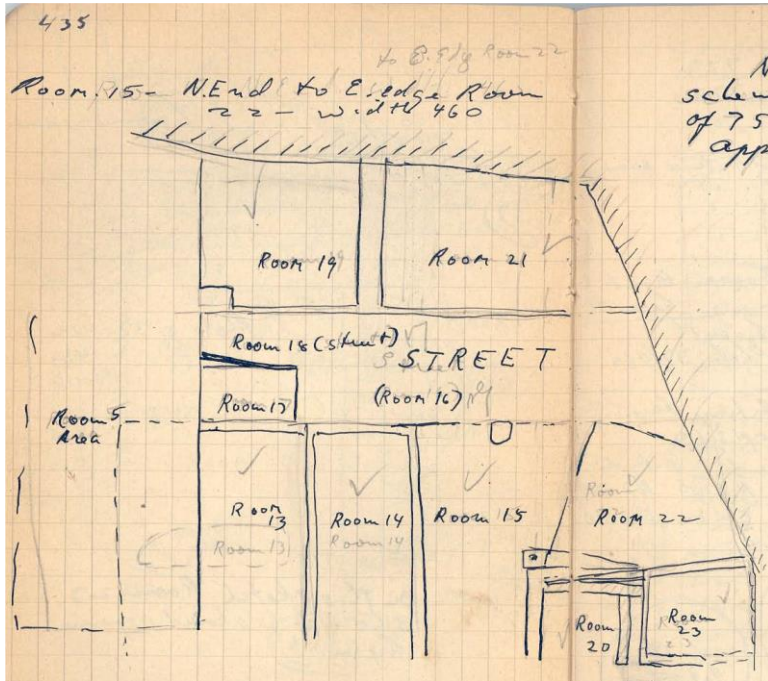 435
to E. Edg Room 22
Room 15 - N.End to E edge Room
22 - width 460
N
schem
of 75
app
Room 19
Room 21
Room 18 (street)
STREET
Room 17
(Room 16)
Room 5
Area
Room
13
Room 14
Room 15
Room
Room 22
Room 13
Room 14
Room
20
Room
23
23